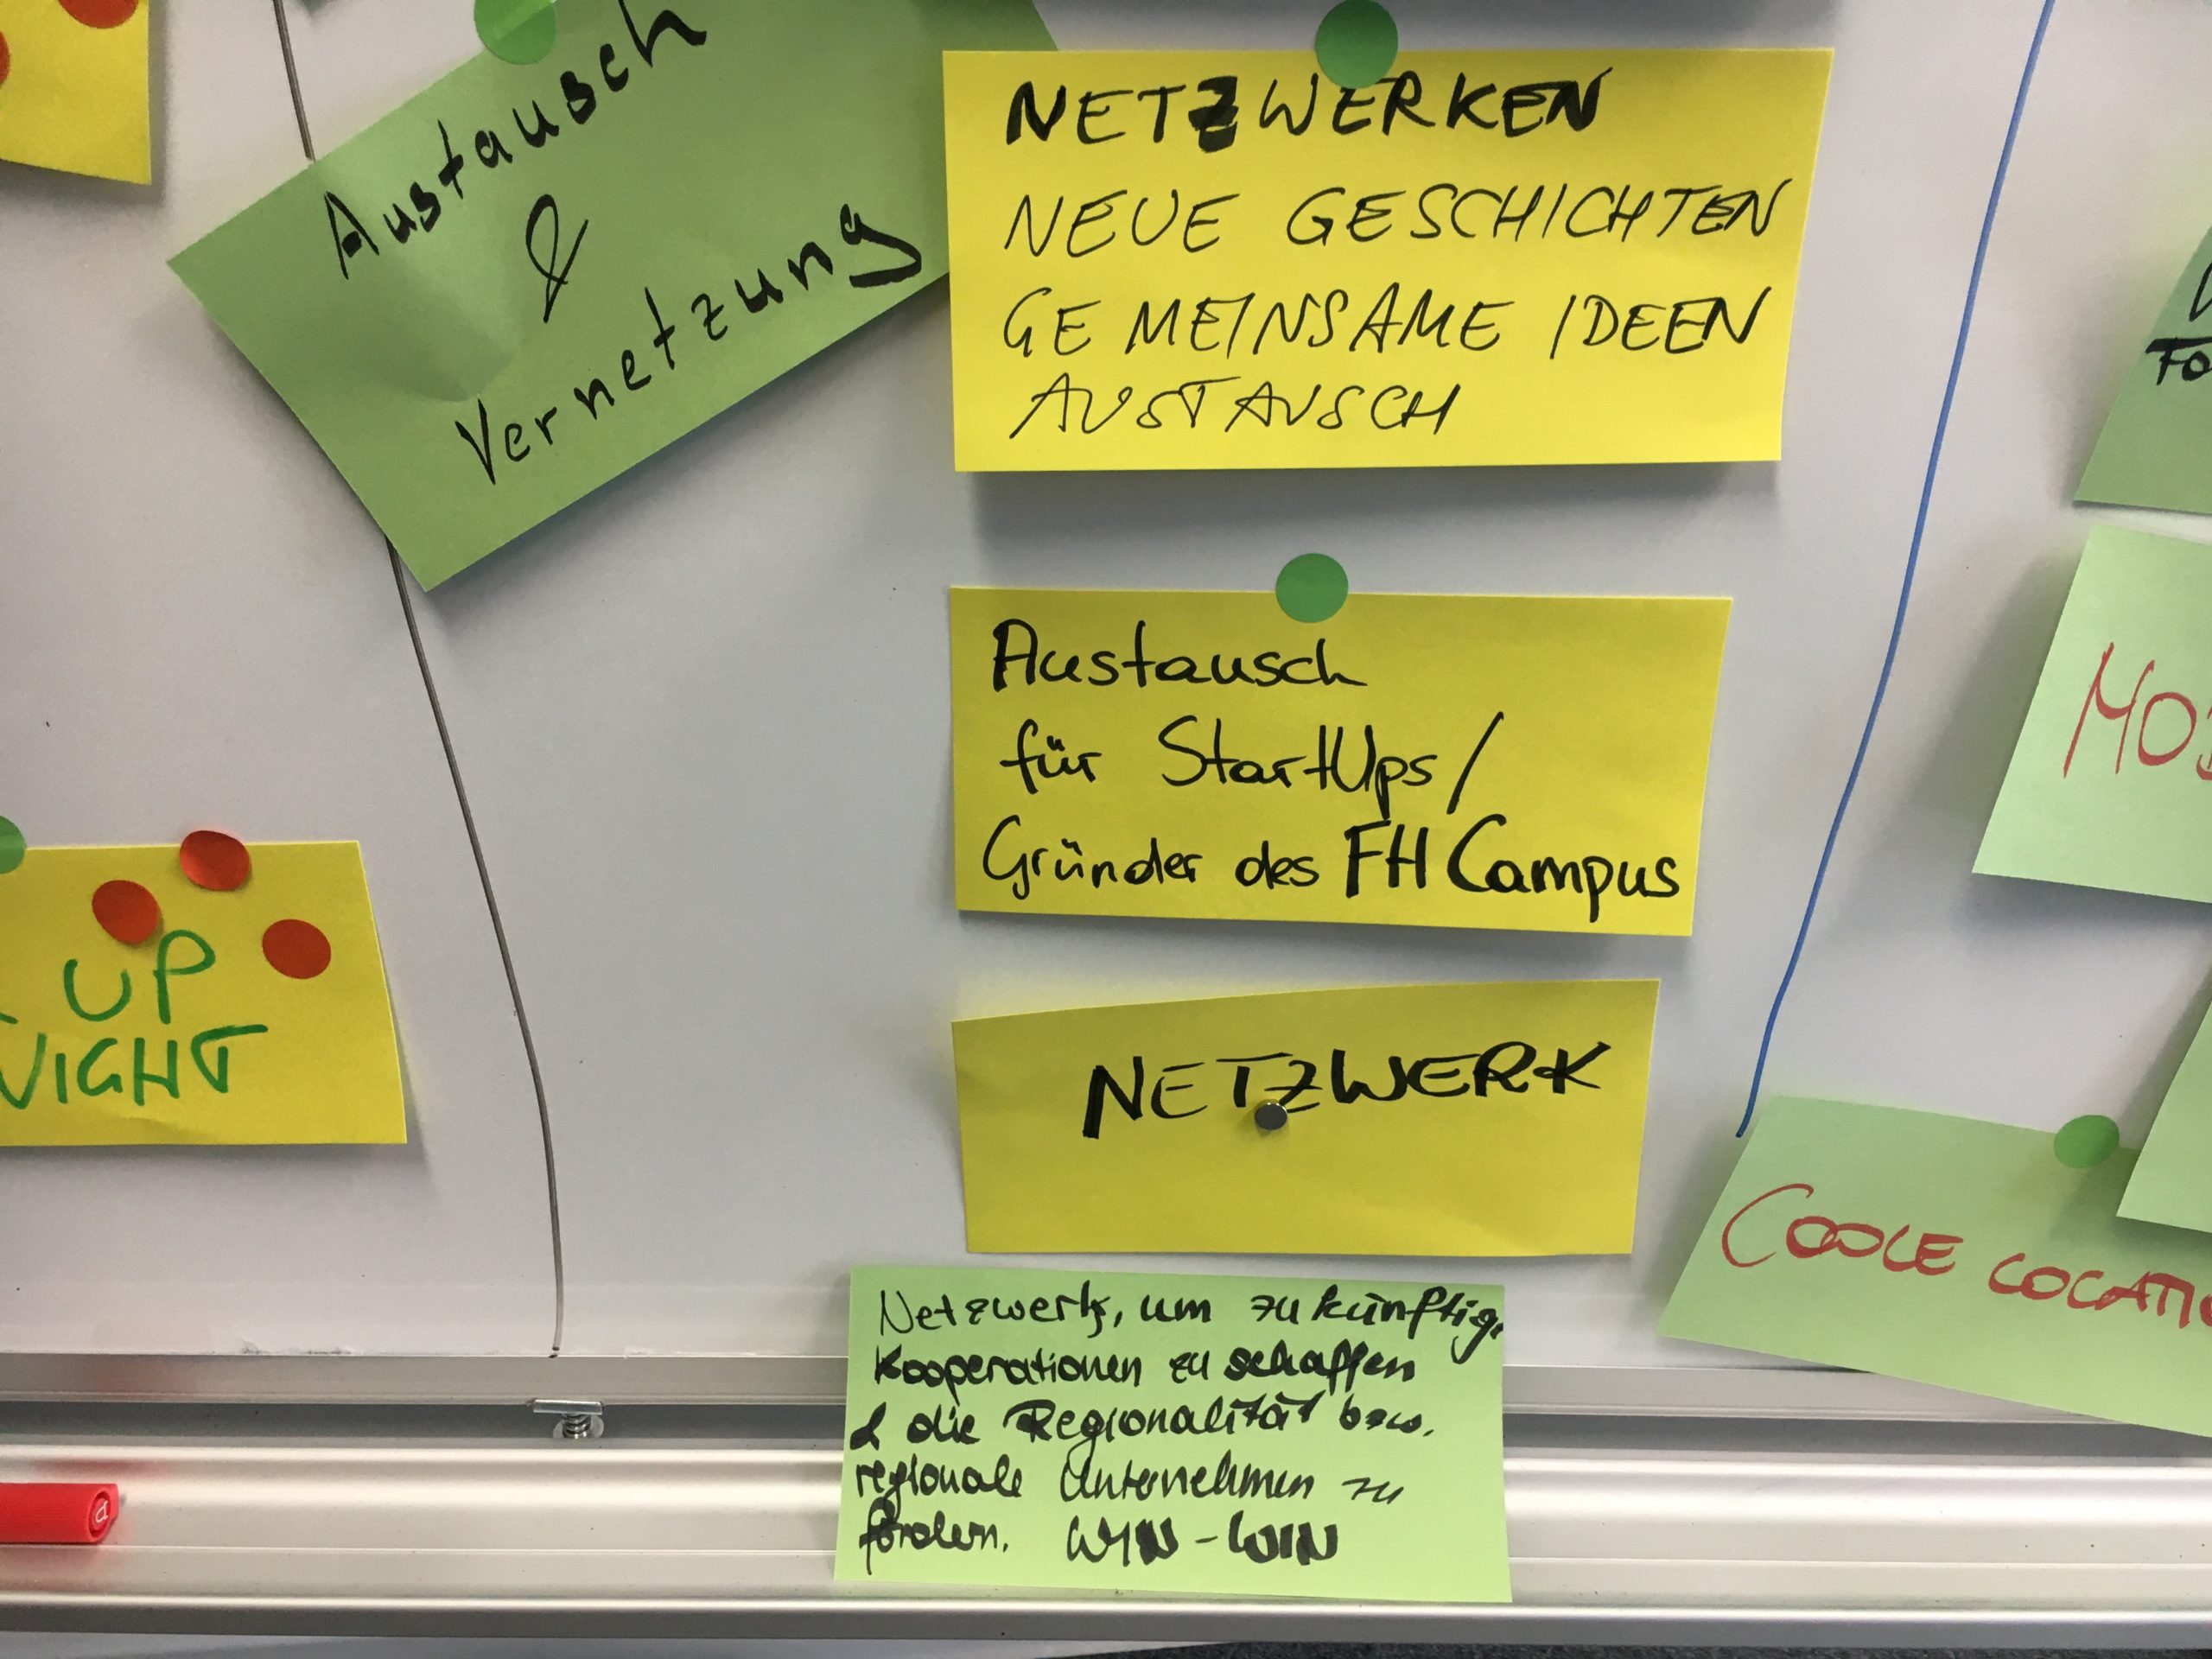 Austausch
&
Vernetzung
NETZWERKEN
NEUE GESCHICHTEN
GEMEINSAME IDEEN
AUSTAUSCH
Austausch
für StartUps/
Gründer des FH Campus
NETZWERK
Netzwerk, um zukünftig.
Kooperationen zu schaffen
& die Regionalität bzw.
regionale Unternehmen zu
fördern. WIN-WIN
UP
NIGHT
COOLE LOCATIO